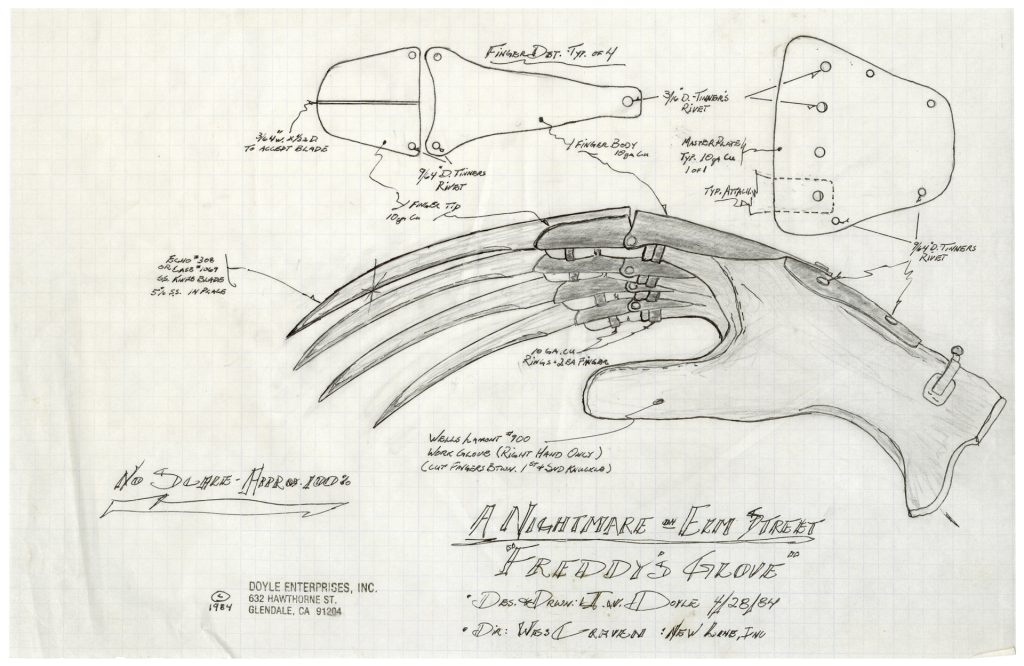 FINGER DET. TYP. OF 4
3/64" W. x 1/2" D.
TO ACCEPT BLADE
9/64" D. TINNERS
RIVET
FINGER TIP
10ga CU
FINGER BODY
18ga CU
3/16" D. TINNER'S
RIVET
MASTER PLATE
TYP. 10ga CU
1 OF 1
TYP. ATTACH
9/64" D. TINNERS
RIVET
ECHO #308
OR CASE #1069
S.S. KNIFE BLADE
IN PLACE
10 GA. CU
RINGS - 2 EA FINGER
WELLS LAMONT #900
WORK GLOVE (RIGHT HAND ONLY)
(CUT FINGERS BTWN. 1ST & 2ND KNUCKLE)
NO SCALE - APPROX. 100%
A NIGHTMARE ON ELM STREET
"FREDDY'S GLOVE"
• DES. & DRWN: J.W. DOYLE 4/28/84
• DIR: WES CRAVEN : NEW LINE, INC
© 1984
DOYLE ENTERPRISES, INC.
632 HAWTHORNE ST.
GLENDALE, CA 91204